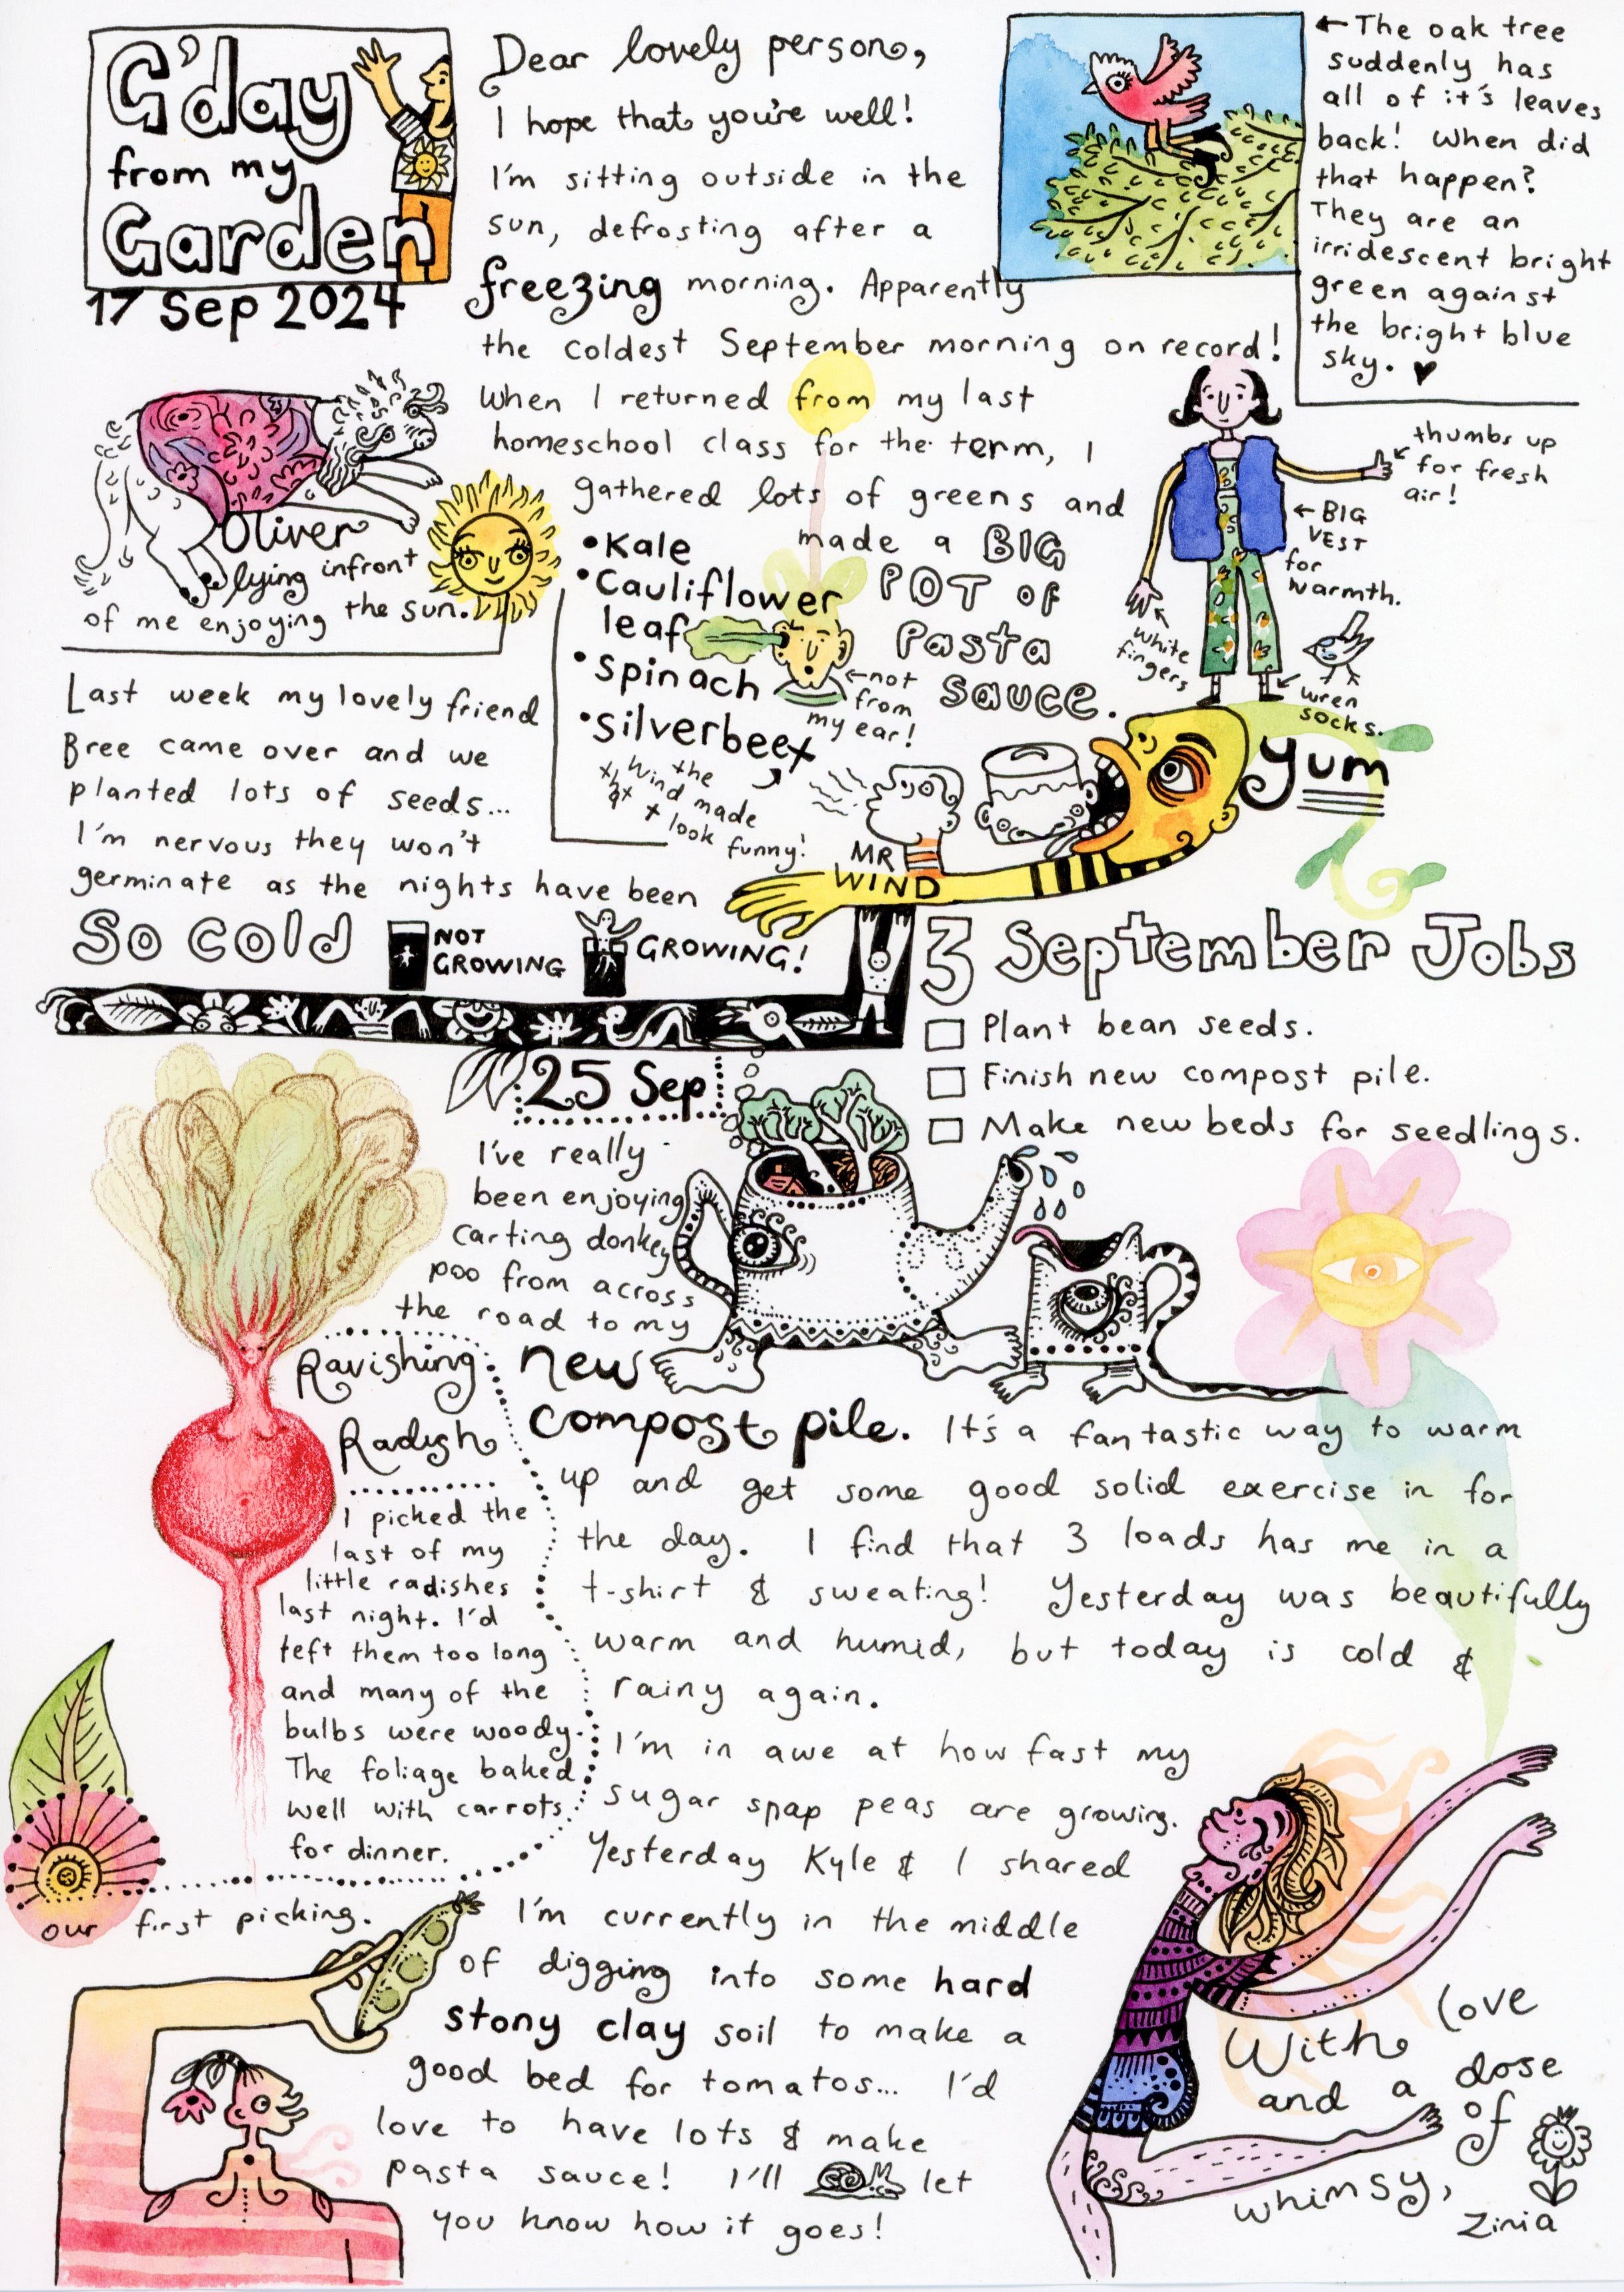 G'day
from my
Garden
17 Sep 2024
Dear lovely person,
I hope that you're well!
I'm sitting outside in the
sun, defrosting after a
freezing morning. Apparently
the coldest September morning on record!
When I returned from my last
homeschool class for the term, I
gathered lots of greens and
made a BIG
POT OF
Pasta
sauce.
• Kale
• Cauliflower
leaf
• Spinach
• Silverbeet
←not
from
my ear!
the
wind made
x look
funny!
← The oak tree
suddenly has
all of it's leaves
back! When did
that happen?
They are an
irridescent bright
green against
the bright blue
sky. ♥
thumbs up
for fresh
air!
← BIG
VEST
for
warmth.
white
fingers
wren
socks.
Yum
MR
WIND
Oliver
lying infront
of me enjoying the sun.
Last week my lovely friend
Bree came over and we
planted lots of seeds...
I'm nervous they won't
germinate as the nights have been
So cold
NOT
GROWING
GROWING!
3 September Jobs
Plant bean seeds.
Finish new compost pile.
Make new beds for seedlings.
25 Sep
I've really
been enjoying
carting donkey
poo from across
the road to my
new
compost pile. It's a fantastic way to warm
up and get some good solid exercise in for
the day. I find that 3 loads has me in a
t-shirt & sweating! Yesterday was beautifully
warm and humid, but today is cold &
rainy again.
Ravishing
Radish
I picked the
last of my
little radishes
last night. I'd
left them too long
and many of the
bulbs were woody.
The foliage baked
well with carrots
for dinner.
I'm in awe at how fast my
sugar snap peas are growing.
Yesterday Kyle & I shared
our first picking.
I'm currently in the middle
of digging into some hard
stony clay soil to make a
good bed for tomatos... I'd
love to have lots & make
pasta sauce! I'll let
you know how it goes!
With love
and a dose
of
whimsy,
Zinia